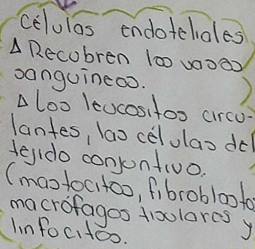 células endoteliales
Δ Recubren los vasos
sanguineos.
Δ Los leucositos circu-
lantes, las células del
tejido conjuntivo.
(mastocitos, fibroblasto
macrófagos tisulares y
linfocitos.